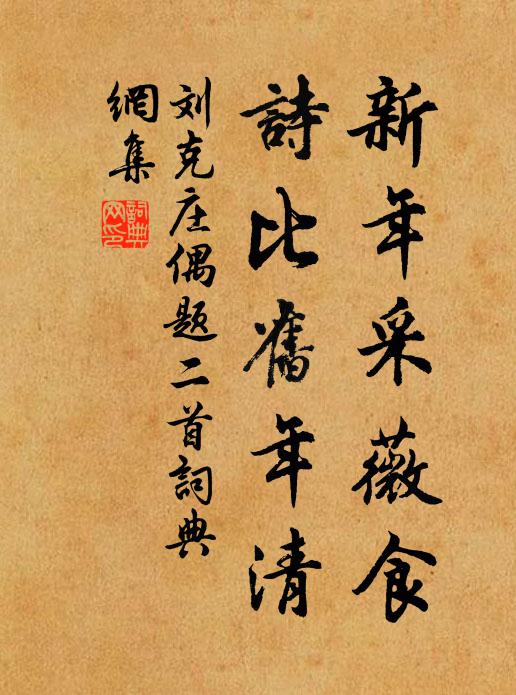 新年采薇食
詩比舊年清
刘克庄偶题二首詞典
網集
詞典
网印